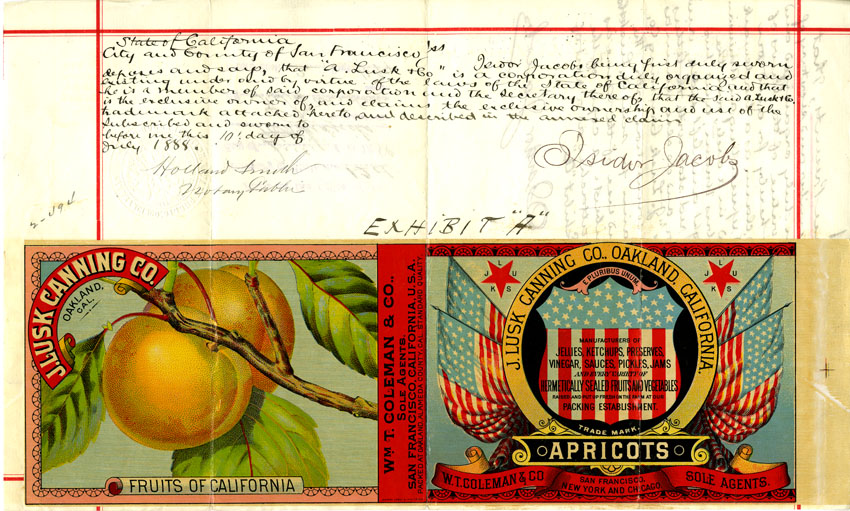 State of California
City and County of San Francisco } ss Isidor Jacobs being first duly sworn
deposes and says, that "A. Lusk & Co" is a corporation duly organized and
existing under and by virtue of the laws of the State of California and that
he is a member of said corporation and the Secretary thereof, that the said A. Lusk & Co.
is the exclusive owner of, and claims the exclusive ownership and use of the
trademark attached hereto, and described in the annexed claim
Subscribed and sworn to
before me this 10th day of
July 1888.
Holland Smith
Notary Public
Isidor Jacobs
EXHIBIT "A"
J. LUSK CANNING CO.
OAKLAND,
CAL.
FRUITS OF CALIFORNIA
WM T. COLEMAN & CO.,
SOLE AGENTS.
SAN FRANCISCO, CALIFORNIA, U.S.A.
J. LUSK CANNING CO., OAKLAND, CALIFORNIA.
E PLURIBUS UNUM.
L U S K J
L U S K J
MANUFACTURERS OF
JELLIES, KETCHUPS, PRESERVES,
VINEGAR, SAUCES, PICKLES, JAMS
AND EVERY VARIETY OF
HERMETICALLY SEALED FRUITS AND VEGETABLES
RAISED AND PUT UP FRESH ON THE FARM AT OUR
PACKING ESTABLISHMENT.
TRADE MARK.
APRICOTS
W. T. COLEMAN & CO
SAN FRANCISCO,
NEW YORK AND CHICAGO.
SOLE AGENTS.